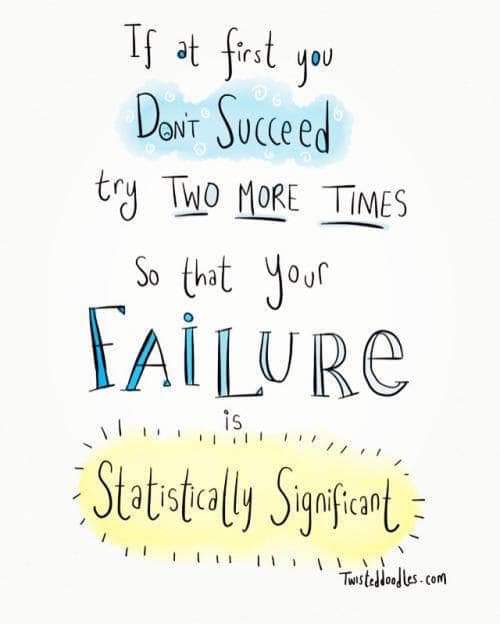 If at first you
DON'T SUCCeed
try TWO MORE TIMES
So that your
FAiLURe
is
Statistically Significant
Twisteddoodles.com